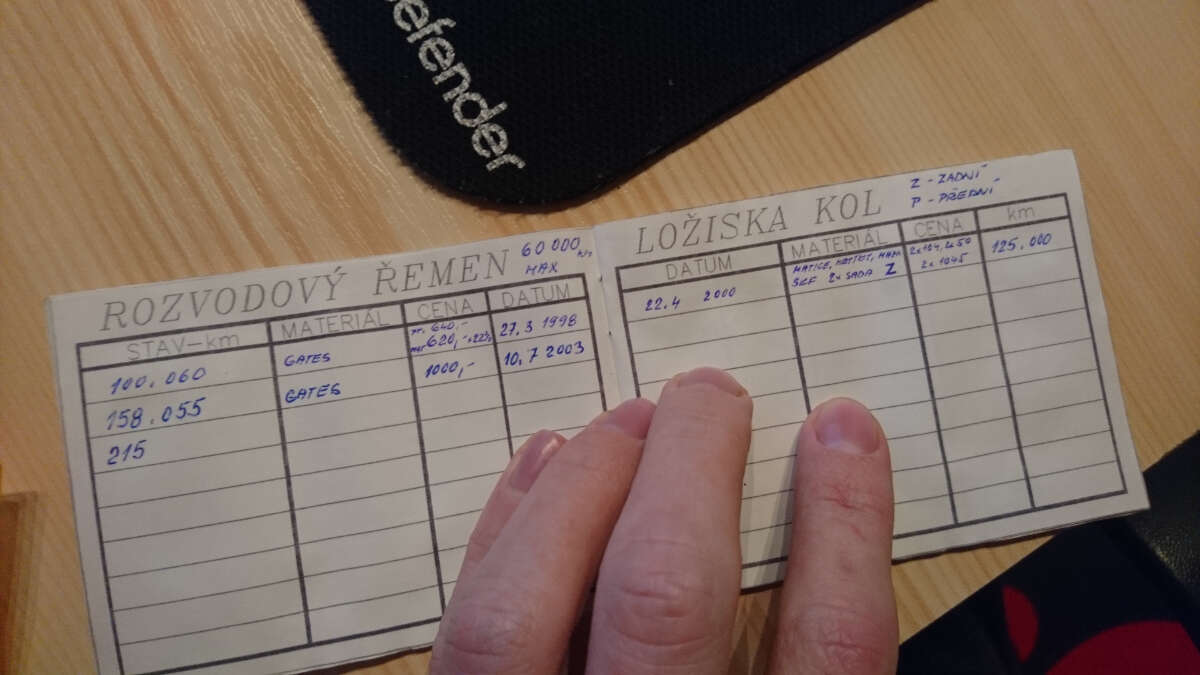 Defender
ROZVODOVÝ ŘEMEN 60 000 km
MAX
STAV-km MATERIÁL CENA DATUM
100.060 GATES 640,- 620,-+22% 27.3 1998
158.055 GATES 1000,- 10.7 2003
215
LOŽISKA KOL Z - ZADNÍ
P - PŘEDNÍ
DATUM MATERIÁL CENA km
22.4 2000 MATICE, 125.000
SKF 2x SADA Z 2x 1045